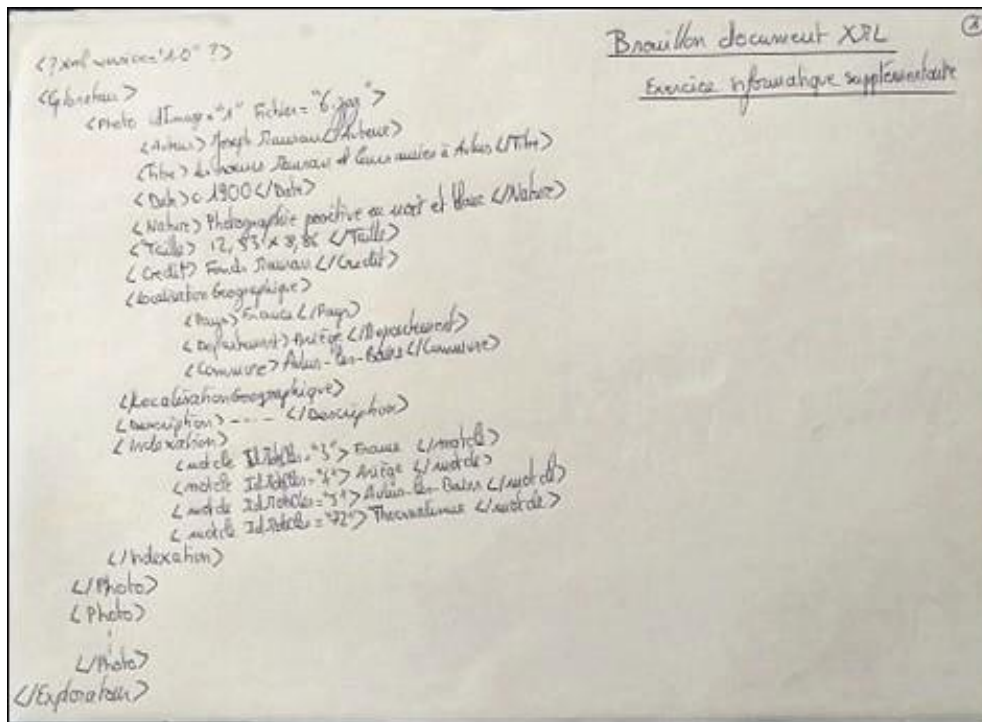 Brouillon document XML
Exercice informatique supplémentaire
<?xml version="1.0" ?>
<Explorateur>
<Photo IdImage="1" Fichier="6.jpg">
<Auteur> Joseph </Auteur>
<Titre> et à Aulus </Titre>
<Date> c 1900 </Date>
<Nature> Photographie positive en noir et blanc </Nature>
<Taille> 12,53 x 8,86 </Taille>
<Credit> Fonds </Credit>
<LocalisationGeographique>
<Pays> France </Pays>
<Departement> Ariège </Departement>
<Commune> Aulus-les-Bains </Commune>
<LocalisationGeographique>
<Description> ---- </Description>
<Indexation>
<motcle IdMotCle="3"> France </motcle>
<motcle IdMotCle="4"> Ariège </motcle>
<motcle IdMotCle="5"> Aulus-les-Bains </motcle>
<motcle IdMotCle="72"> Thermalisme </motcle>
</Indexation>
</Photo>
<Photo>
</Photo>
</Explorateur>